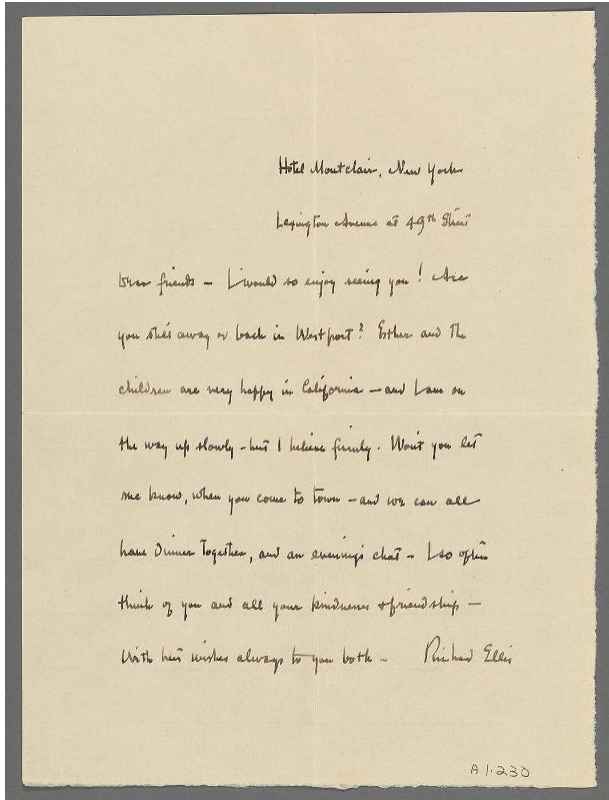 Hotel Montclair, New York
Lexington Avenue at 49th Street
Dear friends – I would so enjoy seeing you! Are
you away or back in Westport? Esther and the
children are very happy in California – and I am on
the way up slowly – but I believe firmly. Won't you let
me know, when you come to town – and we can all
have dinner together, and an evening's chat – I so often
think of you and all your kindness & friendship –
With best wishes always to you both – Richard Ellis
A 1.230